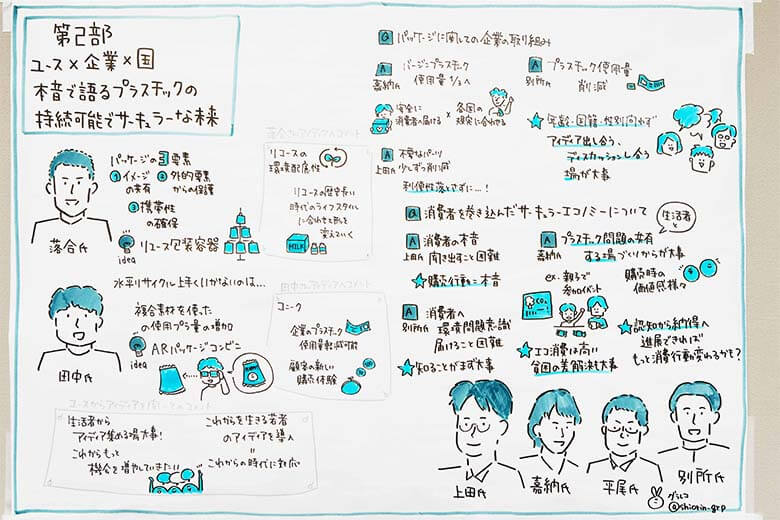 第2部
ユース×企業×国
本音で語るプラスチックの
持続可能でサーキュラーな未来
パッケージの3要素
①イメージの共有
②外的要素からの保護
③携帯性の確保
落合氏
idea
リユース包装容器
落合さんアイディアへコメント
リユースの
環境配慮性
リユースの歴史長い
時代のライフスタイル
に合わせた形で
変えていく
MILK
水平リサイクル上手くいかないのは…
複合素材を使った
の使用プラ量の増加
idea
ARパッケージコンビニ
田中氏
田中さんアイディアへコメント
ユニーク
企業のプラスチック
使用量軽減可能
顧客の新しい
購売体験
ユースからアイディアを聞いてのコメント
生活者から
アイディア集める場大事!
これから もっと
機会を増やしていきたい
これからを生きる若者
のアイディアを導入
=
これからの時代に対応
Q パッケージに関しての企業の取り組み
A バージンプラスチック
嘉納氏 使用量1/2へ
安全に
消費者へ届ける
×
各国の
現実に合わせる
A プラスチック使用量
別所氏 削減
★年齢・国籍・性別問わず
アイディア出し合う、
ディスカッションし合う
場が大事
A 不要なパーツ
上田氏 少しずつ削減
利便性落とさずに…!
Q 消費者を巻き込んだサーキュラーエコノミーについて
生活者と
A 消費者の本音
上田氏 聞き出すこと困難
★購売行動=本音
A プラスチック問題の共有
嘉納氏 する場づくりからが大事
ex. 親子で
参加イベント
CO2
購売時の
価値感様々
A 消費者へ
別所氏 環境問題意識
届けること困難
★知ることがまず大事
★エコ消費は高い
貧困の差解決も大事
★認知から納得へ
進展できれば
もっと消費行動変わるかも?
上田氏
嘉納氏
平尾氏
別所氏
グラレコ
@shiorin_grp